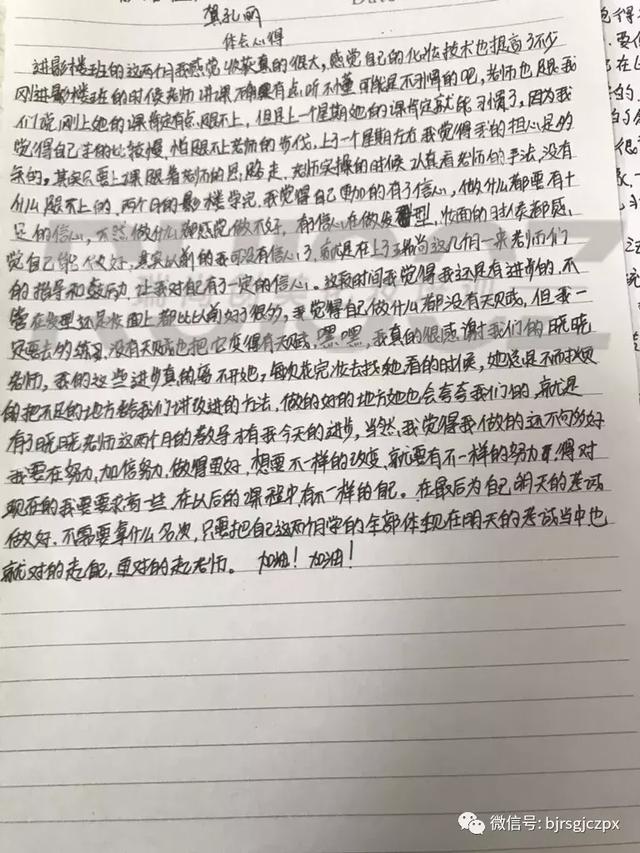 龚孔丽
Date
体会心得
进影楼班的这两个月我感觉收获真的很大,感觉自己的化妆技术也提高了不少
刚进影楼班的时候老师讲课有点听不懂可能是不习惯的吧,老师也跟我
们说,刚上她的课肯定有点跟不上,但是上一个星期她的课肯定就能习惯了,因为我
觉得自己手的比较慢,怕跟不上老师的步伐,上了一个星期左右我觉得我的担心是多
余的,其实只要上课跟着老师的思路走,老师实操的时候认真看老师的手法,没有
什么跟不上的,两个月的影楼学完,我觉得自己更加的有了信心,做什么都要有十
足的信心,不然做什么都感觉做不好,有信心在做发型,妆面的时候都感
觉自己能做好,其实以前的我可没有信心了,就是在上了瑞尚这几个月来老师们
的指导和鼓励,让我对自己有了一定的信心。这段时间我觉得我还是有进步的,不
管在发型还是妆面上都比以前好了很多,我觉得自己做什么都没有天赋,但我一
只要去多练习,没有天赋也把它变得有天赋,嘿嘿,我真的很感谢我们的晓晓
老师,我的这些进步真的离不开她,每次化完妆去找她看的时候,她总是不厌其烦
的把不足的地方给我们讲改进的方法,做的好的地方她也会夸夸我们的,就是
有了晓晓老师这两个月的教导才有我今天的进步,当然,我觉得我做的还不够多好
我要在努力,加倍努力,做得更好,想要不一样的改变,就要有不一样的努力,得对
现在的我要要求高一些,在以后的课程中有不一样的自己。在最后为自己明天的考试
做好,不需要拿什么名次,只要把自己这两个月学的全部体现在明天的考试当中也
就对的起自己,更对的起老师。加油!加油!
微信号: bjrsgjczpx